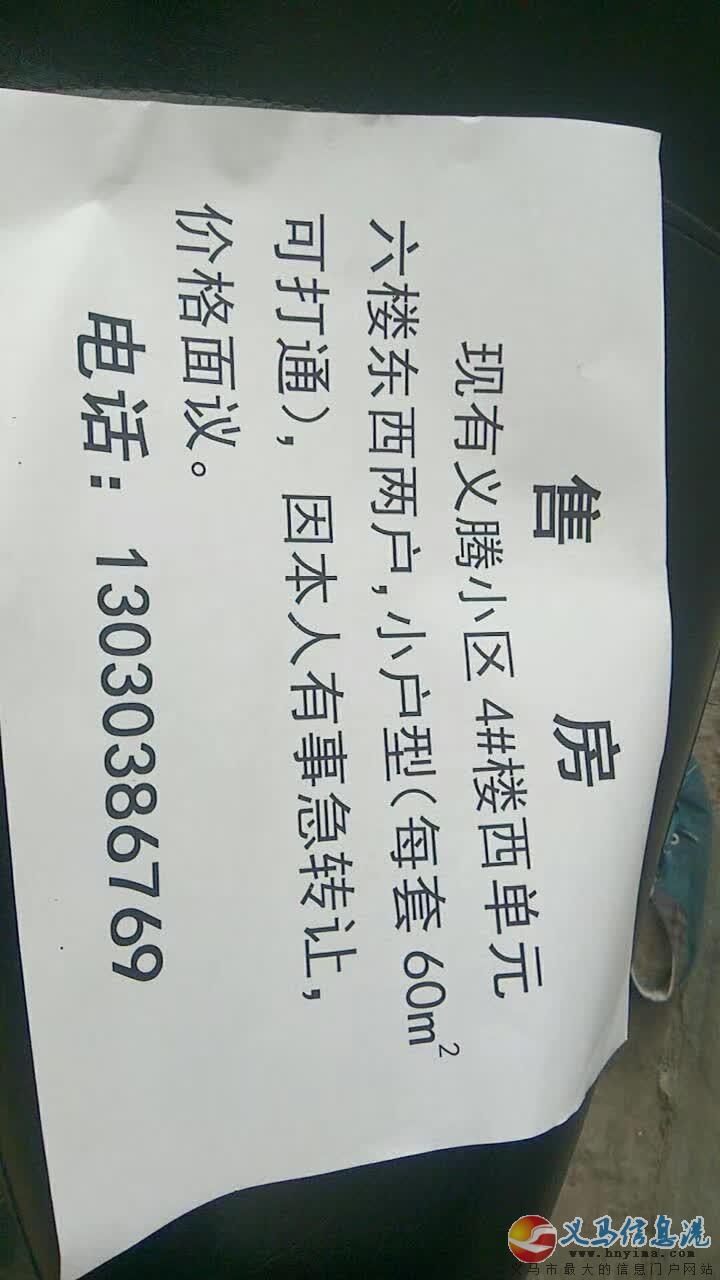 售 房
现有义腾小区 4#楼西单元
六楼东西两户,小户型(每套 60m²
可打通),因本人有事急转让,
价格面议。
电话:13030386769
义马信息港
www.hnyima.com
义马市最大的信息门户网站